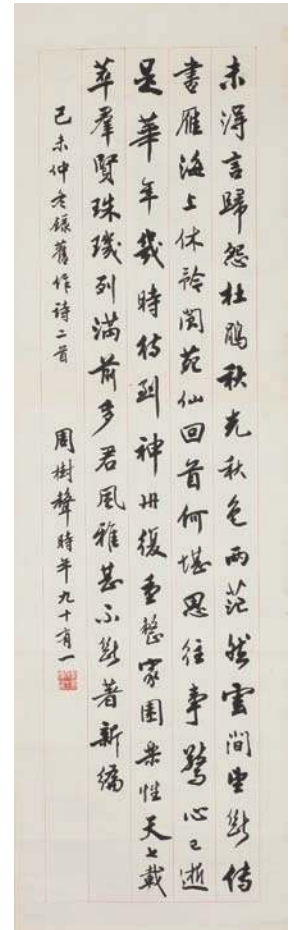 未得言歸怨杜鵑秋光秋色兩茫然雲間望斷傳
書雁海上休誇閬苑仙回首何堪思往事驚心已逝
是華年幾時待到神州復重整家園樂性天七載
萃羣賢珠璣列滿前多君風雅甚不斷著新編
己未仲冬錄舊作詩二首 周樹聲時年九十有一